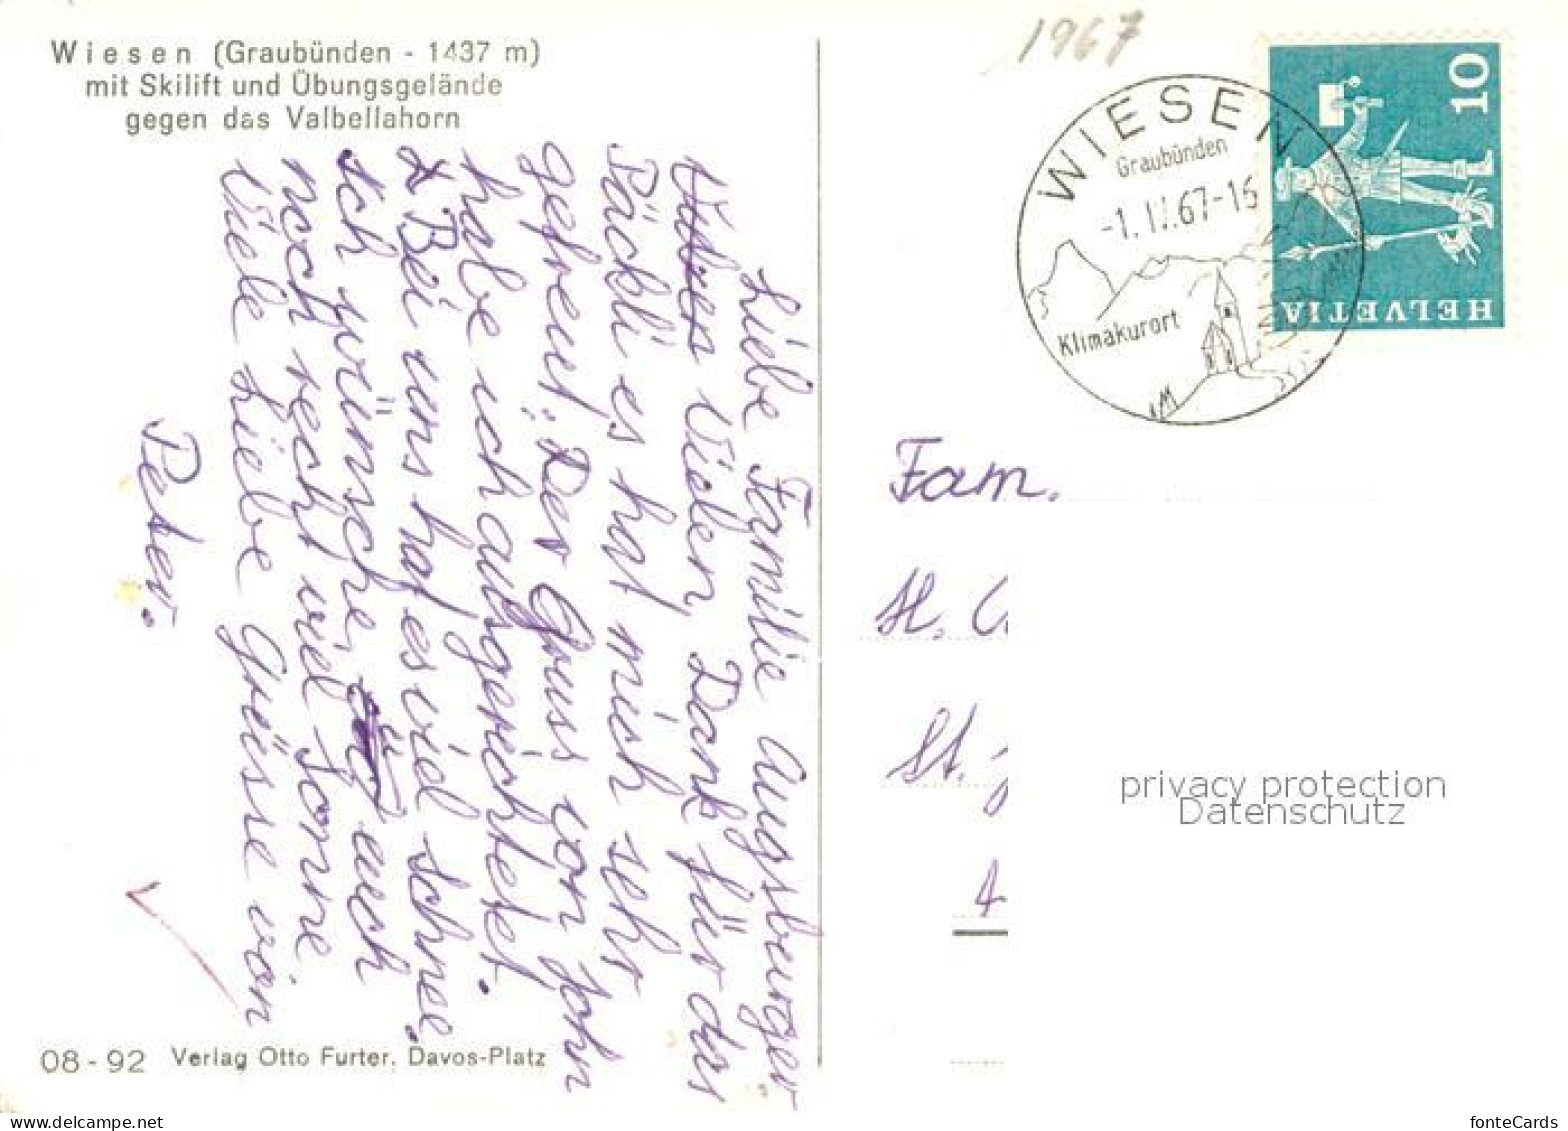 Wiesen (Graubünden - 1437 m)
mit Skilift und Übungsgelände
gegen das Valbellahorn
1967
WIESEN
Graubünden
-1. II. 67-16
Klimakurort
10
HELVETIA
Liebe Familie Augsburger
Vielen Dank für das
Päckli es hat mich sehr
gefreut. Der Gruss von John
habe ich ausgerichtet.
Bei uns hat es viel schnee.
Ich wünsche, euch
noch recht viel Sonne
Viele Liebe Grüsse von
Peter.
Fam.
H.
St.
privacy protection
Datenschutz
08 - 92 Verlag Otto Furter. Davos-Platz
delcampe.net
fonteCards